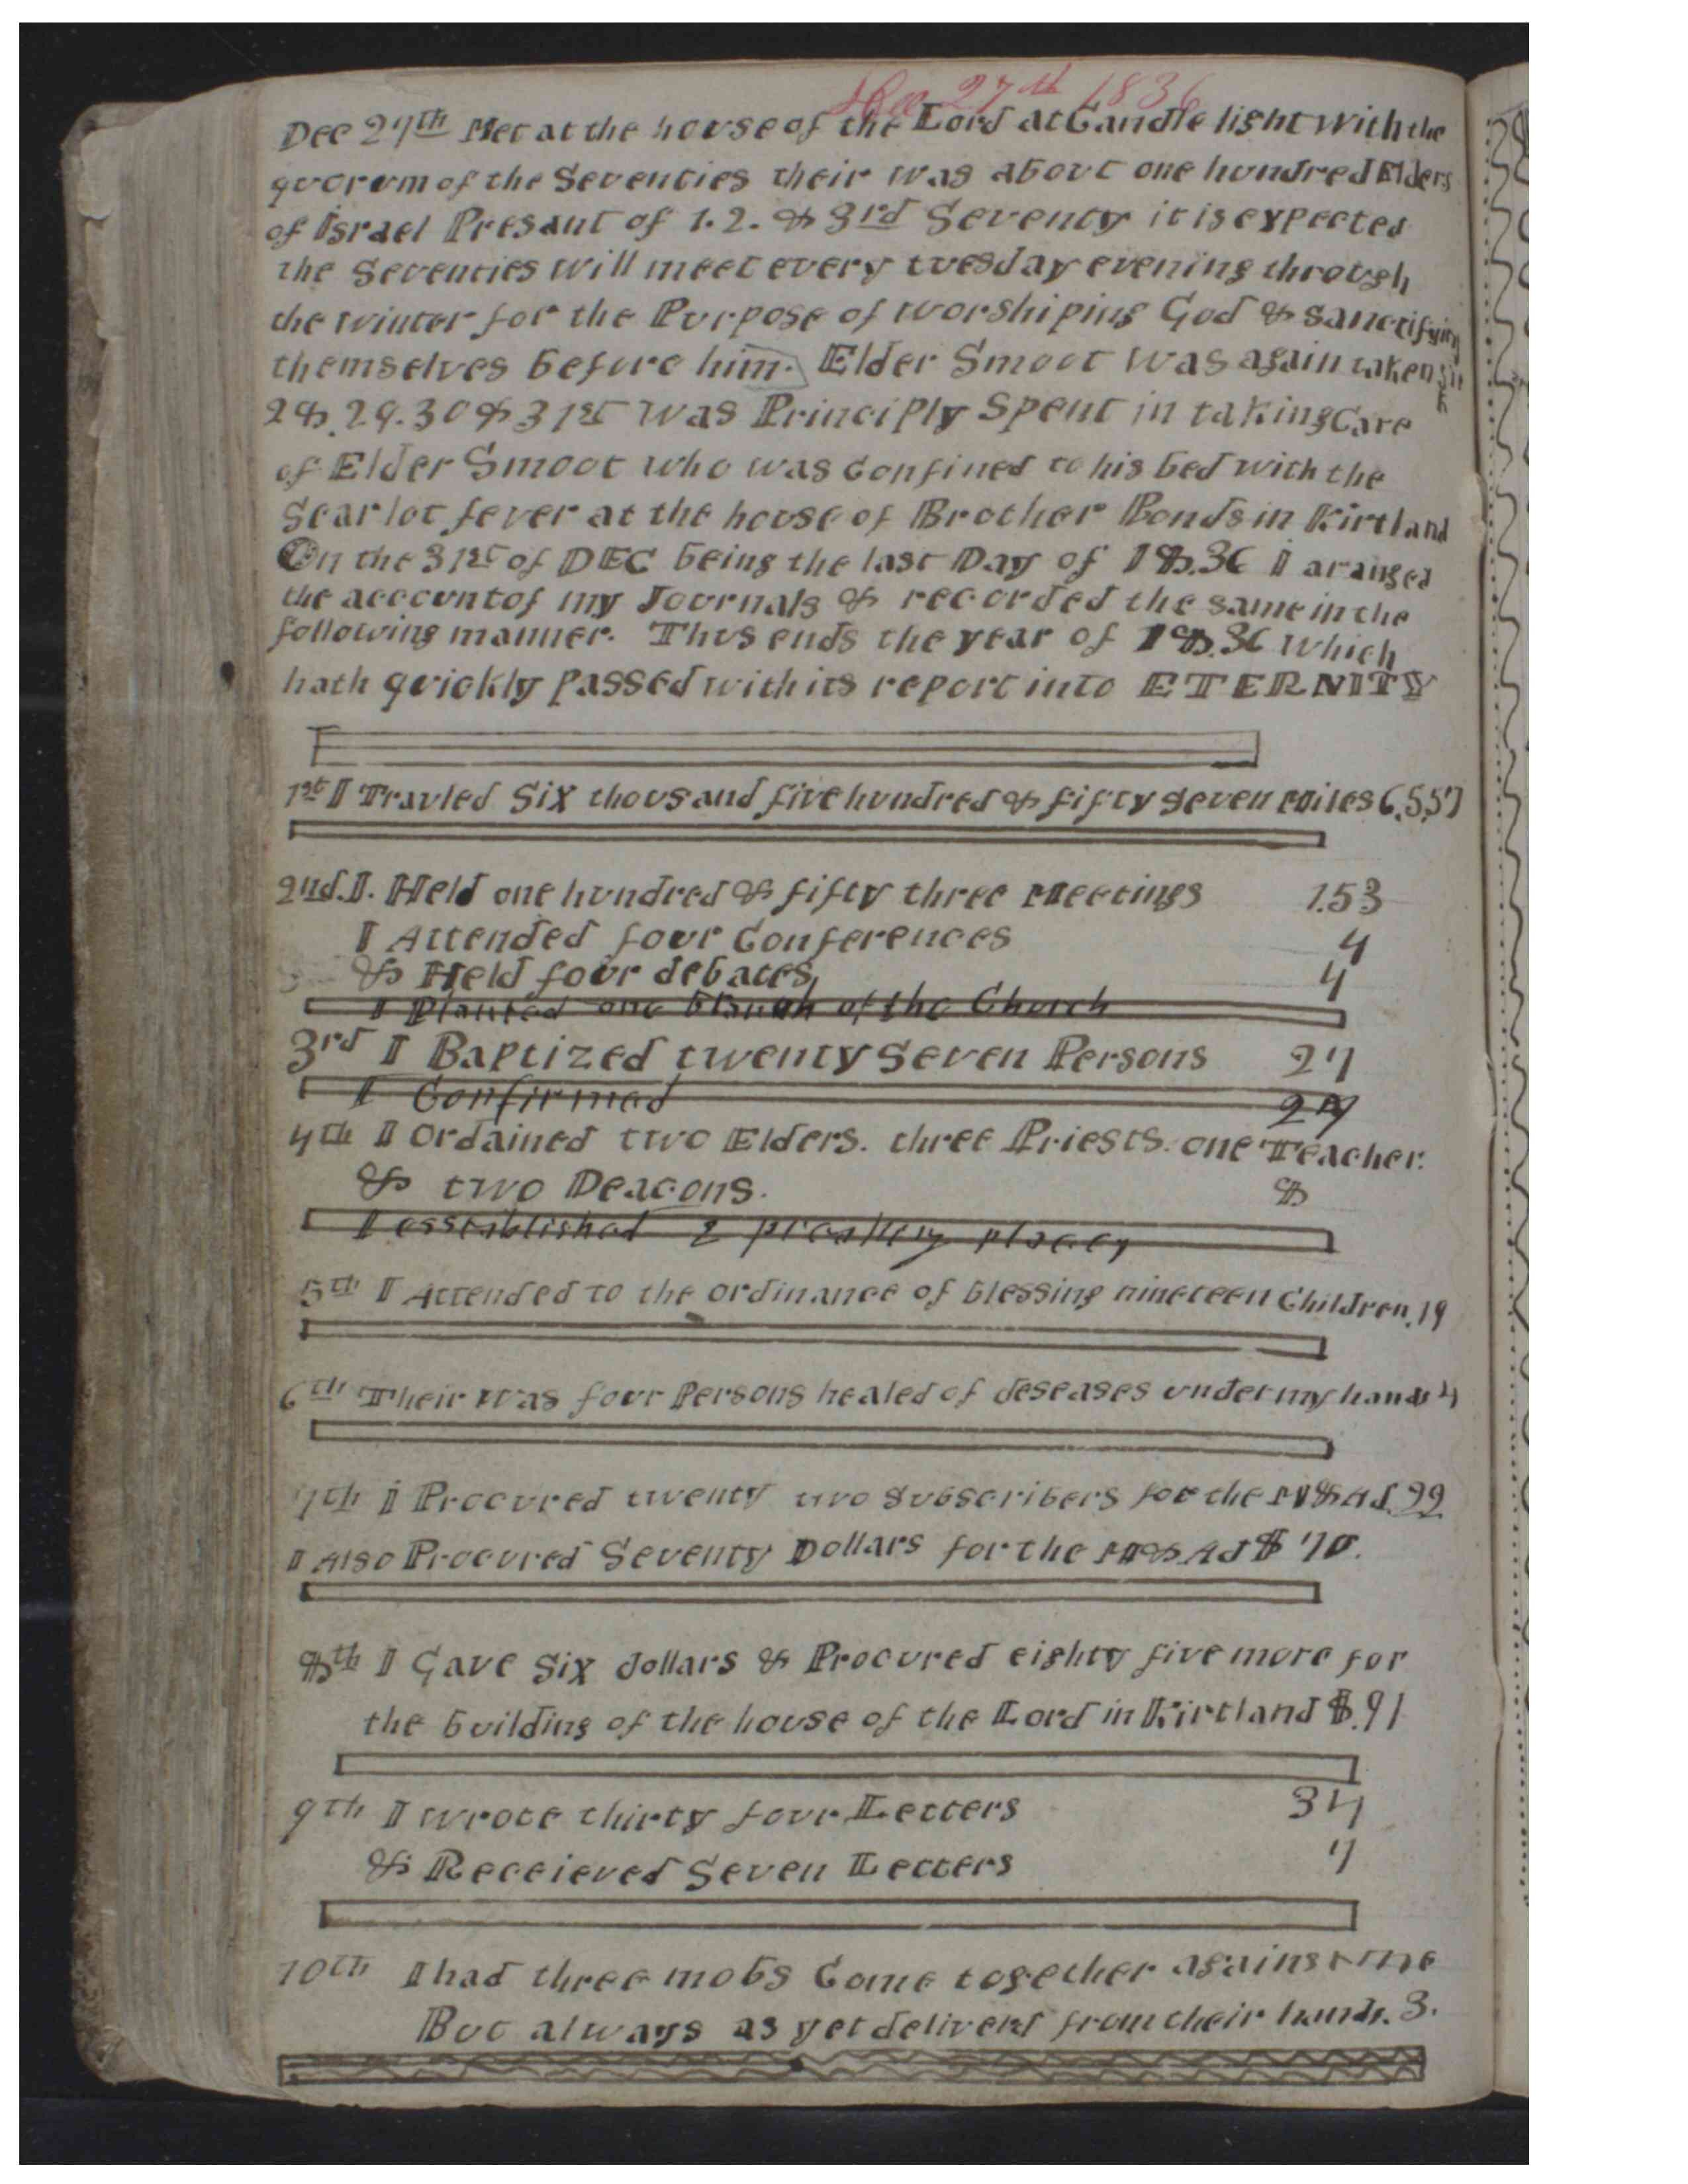 Dec 27th 1836
Dec 27th Met at the house of the Lord at Candle light with the
quorum of the Seventies their was about one hundred Elders
of Israel Presant of 1. 2. & 3rd Seventy it is expected
the Seventies will meet every tuesday evening through
the winter for the Purpose of worshiping God & sanctifying
themselves before him. Elder Smoot was again taken sick
28. 29. 30 & 31st was Principly Spent in taking Care
of Elder Smoot who was Confined to his bed with the
Scarlot fever at the house of Brother Bonds in Kirtland
On the 31st of DEC being the last Day of 18.36 I aranged
the account of my Journals & recorded the same in the
following manner. Thus ends the year of 18.36 which
hath quickly passed with its report into ETERNITY
1st I Travled Six thousand five hundred & fifty seven miles 6.557
2nd. I. Held one hundred & fifty three Meetings 1.53
I Attended four Conferences 4
& Held four debates, 4
I Planted one branch of the Church
3rd I Baptized twenty Seven Persons 27
I Confirmed 27
4th I Ordained two Elders. three Priests. one Teacher.
& two Deacons. 8
I esstablished 2 preaching places
5th I Attended to the ordinance of blessing nineteen Children. 19
6th Their was four Persons healed of deseases under my hands 4
7th I Procured twenty two Subscribers for the M&AJ. 22
I Also Procured Seventy Dollars for the M&AJ $ 70.
8th I Gave Six dollars & Procured eighty five more for
the building of the house of the Lord in Kirtland $.91
9th I wrote thirty four Letters 34
& Receieved Seven Letters 7
10th I had three mobs Come together against me
But always as yet deliverd from their hands. 3.